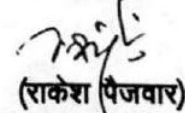 (राकेश पैजवार)